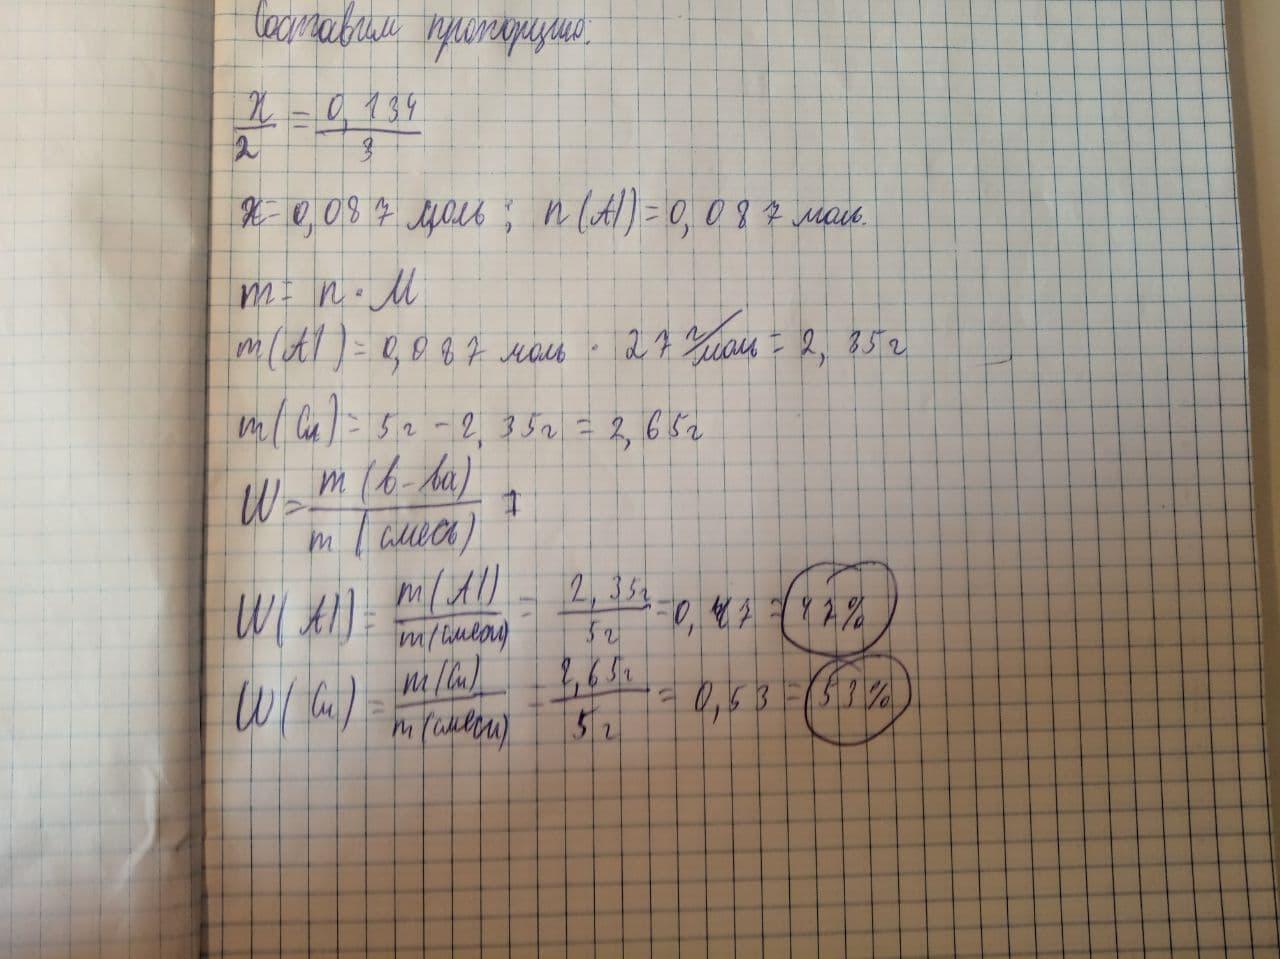 Составим пропорцию:
x/2 = 0,134/3
x = 0,087 моль ; n(Al) = 0,087 моль.
m = n · M
m(Al) = 0,087 моль · 27 г/моль = 2,35г
m(Cu) = 5г - 2,35г = 2,65г
W = m(в-ва)/m(смесь)
W(Al) = m(Al)/m(смеси) = 2,35г/5г = 0,47 = 47%
W(Cu) = m(Cu)/m(смеси) = 2,65г/5г = 0,53 = 53%